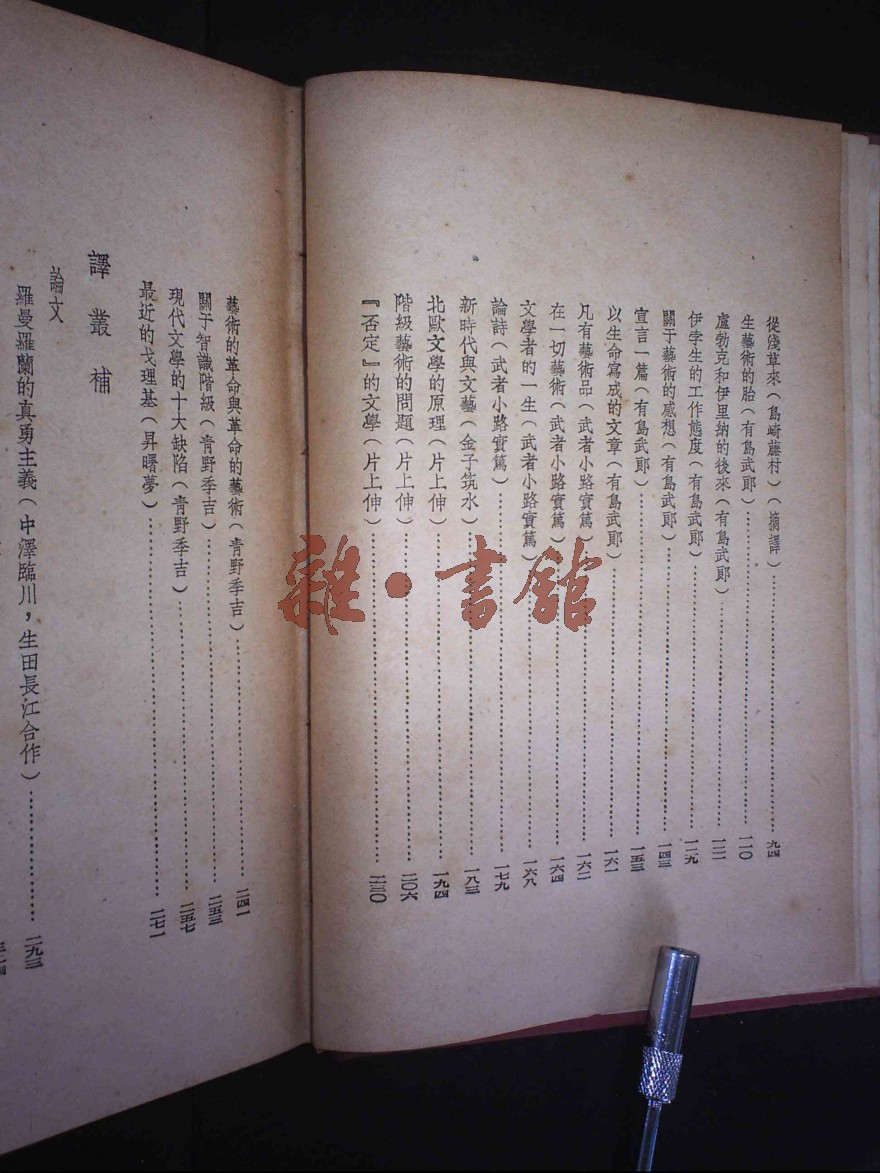 從淺草來(島崎藤村)(摘譯)…………九四
生藝術的胎(有島武郞)…………一一〇
盧勃克和伊里納的後來(有島武郞)…………一二一
伊孛生的工作態度(有島武郞)…………一二九
關于藝術的感想(有島武郞)…………一四三
宣言一篇(有島武郞)…………一五三
以生命寫成的文章(有島武郞)…………一六一
凡有藝術品(武者小路實篤)…………一六二
在一切藝術(武者小路實篤)…………一六四
文學者的一生(武者小路實篤)…………一六八
論詩(武者小路實篤)…………一七九
新時代與文藝(金子筑水)…………一八三
北歐文學的原理(片上伸)…………一九四
階級藝術的問題(片上伸)…………二〇六
『否定』的文學(片上伸)…………二三〇
藝術的革命與革命的藝術(靑野季吉)…………二四一
關于智識階級(靑野季吉)…………二五三
現代文學的十大缺陷(靑野季吉)…………二五七
最近的戈理基(昇曙夢)…………二七一
譯叢補
論文
羅曼羅蘭的真勇主義(中澤臨川,生田長江合作)…………二九三
雜·書館